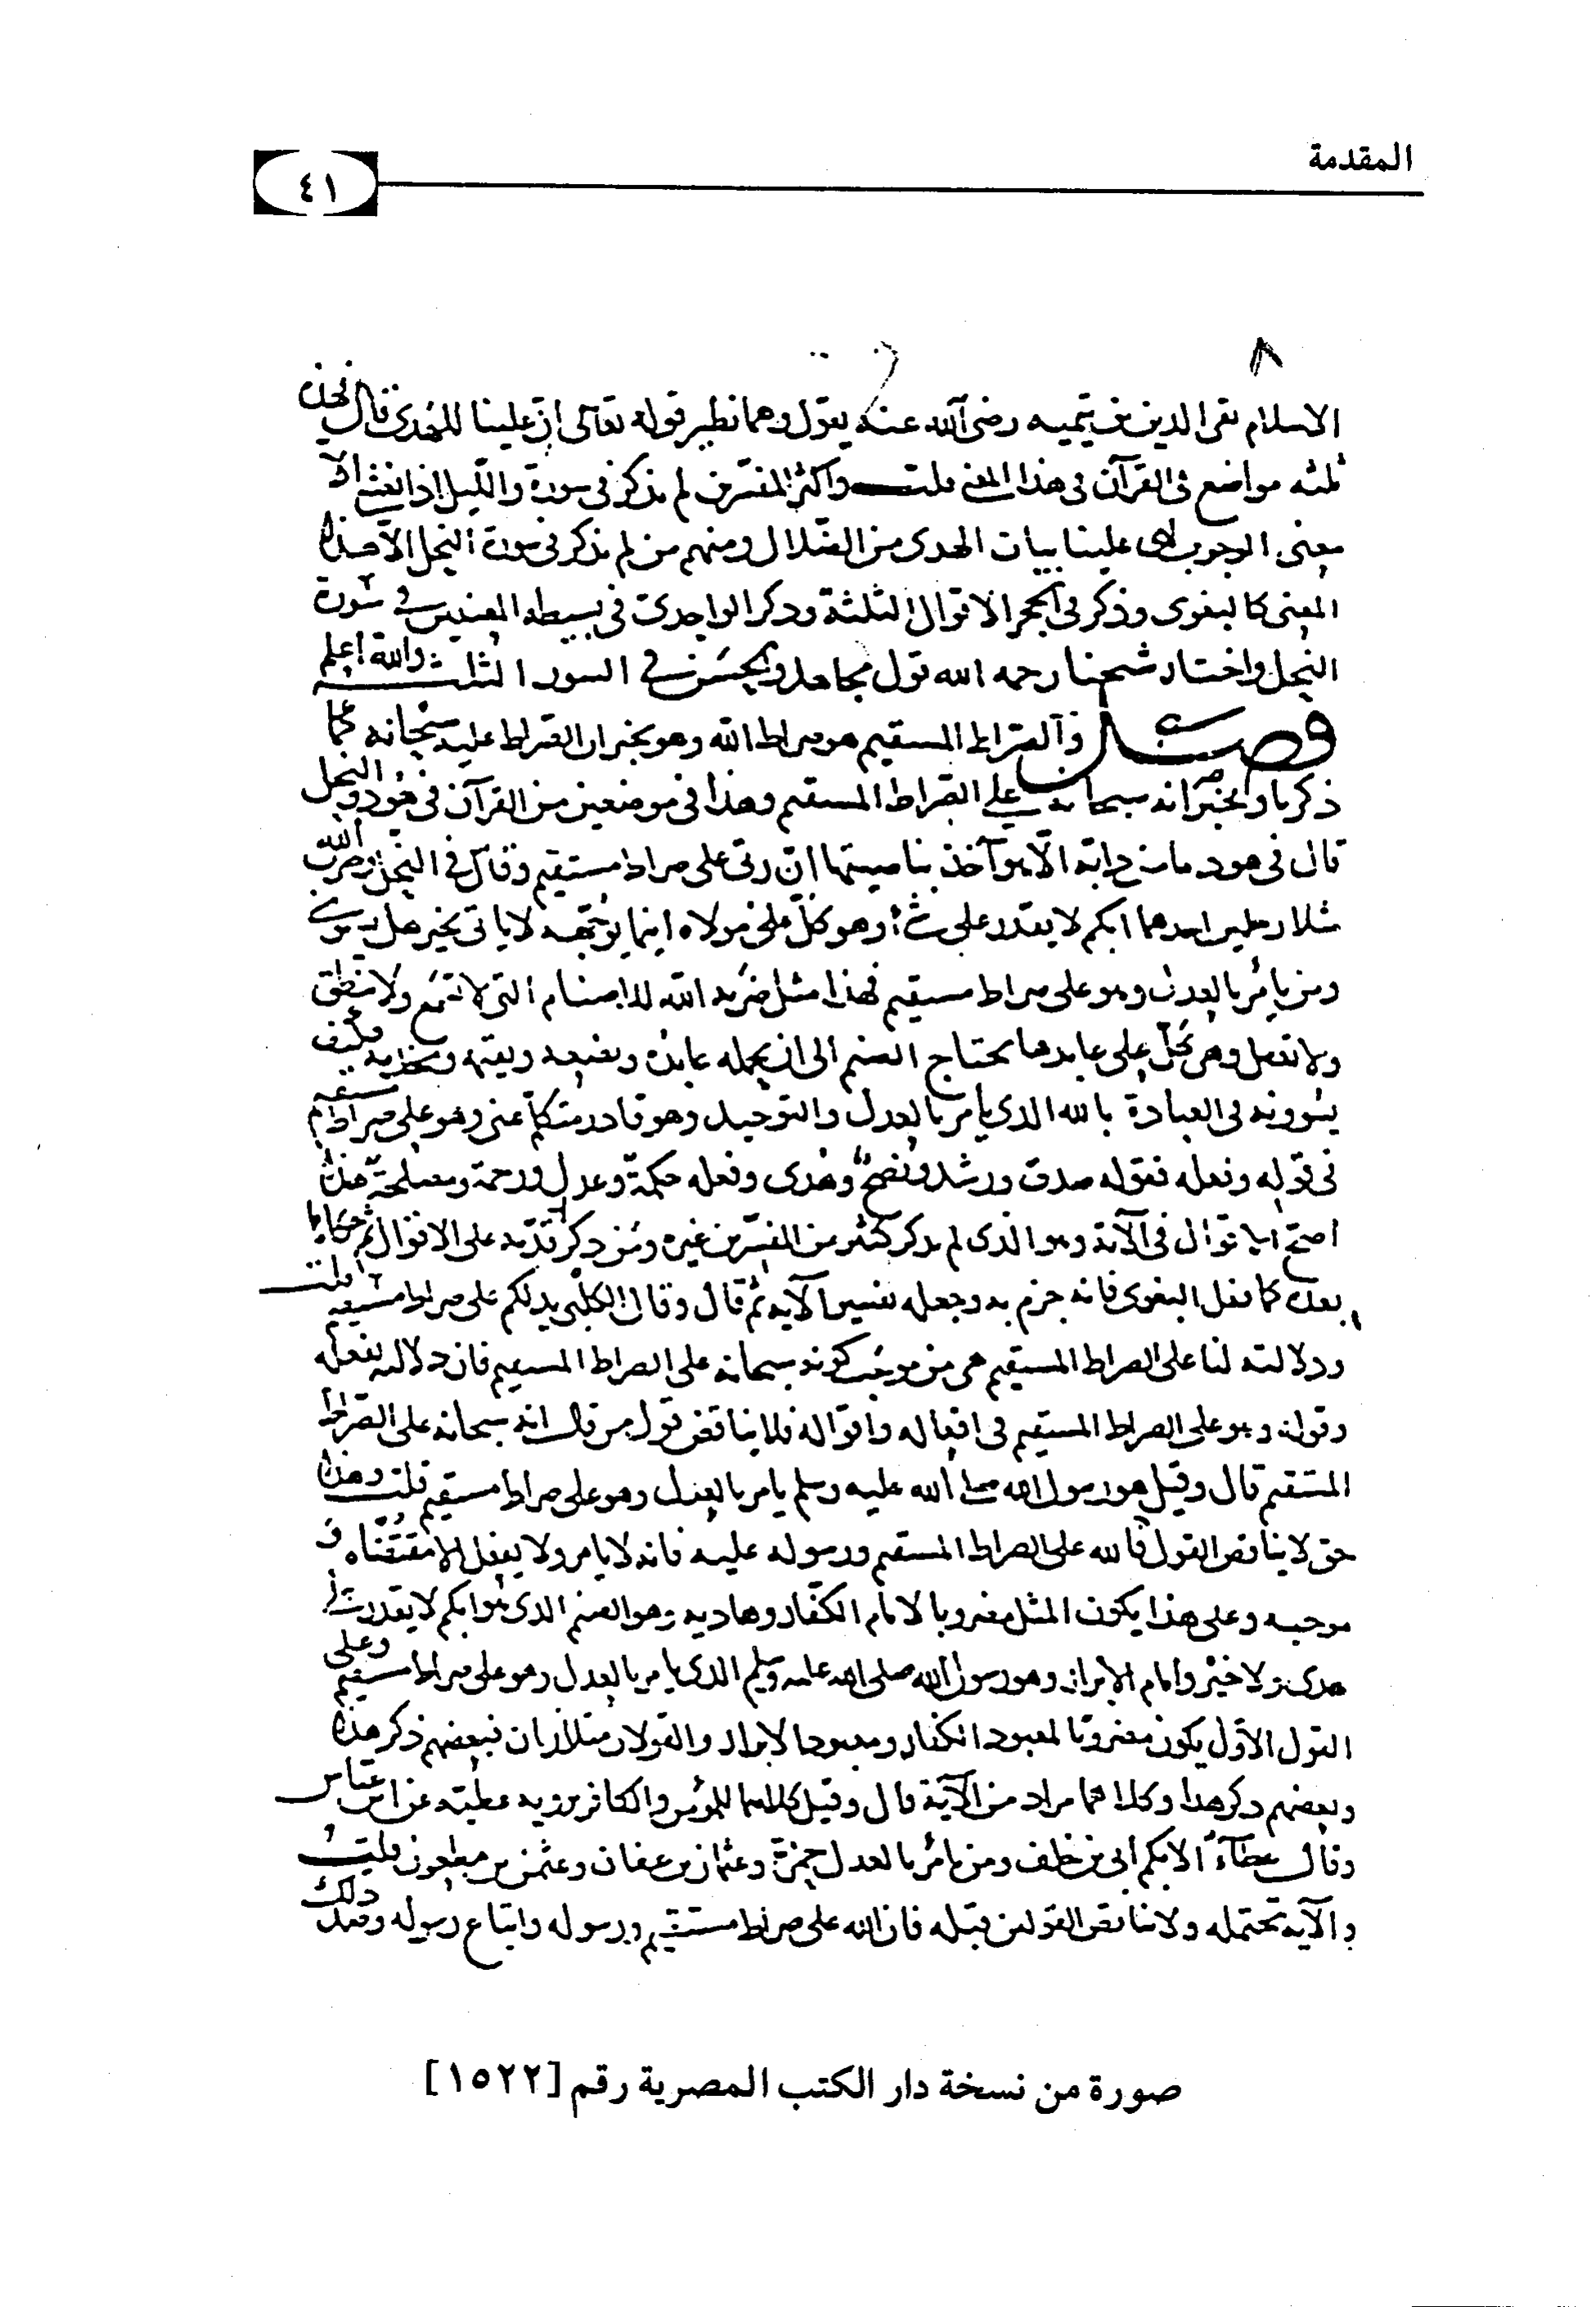 المقدمة
٤١
الاسلام تقى الدين بن تيميه رضى الله عنه يقول وهما نظير قوله تعالى ان علينا للهدى قال فهذه
ثلثه مواضع فى القرآن فى هذا المعنى قلت واكثر المفسرين لم يذكر فى سورة والليل اذا يغشى الا
معنى الوجوب اى علينا بيان الهدى من الضلال ومنهم من لم يذكر فى سورة النحل الا هذا
المعنى كالبغوى وذكر فى الحجر الاقوال الثلثة وذكر الواحدى فى بسيطه المعنيين فى سورة
النحل واختار شيخنا رحمه الله قول مجاهد والحسن فى السور الثلث والله اعلم
فصل والصراط المستقيم هو صراط الله وهو يخبر ان الصراط عليه سبحانه كما
ذكرنا ويخبر انه سبحانه على الصراط المستقيم وهذا فى موضعين من القرآن فى هود والنحل
قال فى هود ما من دابة الا هو آخذ بناصيتها ان ربى على صراط مستقيم وقال فى النحل وضرب الله
مثلا رجلين احدهما ابكم لا يقدر على شئ وهو كل على مولاه اينما يوجهه لا يأتى بخير هل يستوى
ومن يأمر بالعدل وهو على صراط مستقيم فهذا مثل ضربه الله للاصنام التى لا تسمع ولا تنطق
ولا تعقل وهى كل على عابدها يحتاج الصنم الى ان يحمله عابده ويضعه ويقيمه ويخدمه فكيف
يسوونه فى العبادة بالله الذى يأمر بالعدل والتوحيد وهو قادر متكلم غنى وهو على صراط مستقيم
فى قوله وفعله فقوله صدق ورشد ونصح وهدى وفعله حكمة وعدل ورحمة ومصلحة هذا
اصح الاقوال فى الآية وهو الذى لم يذكر كثير من المفسرين غيره ومن ذكر غيره قدمه على الاقوال ثم حكاها
بعده كما فعل البغوى فانه جزم به وجعله تفسير الآية ثم قال وقال الكلبى يدلكم على صراط مستقيم قلت
ودلالته لنا على الصراط المستقيم هى من موجب كونه سبحانه على الصراط المستقيم فان دلالته بفعله
وقوله وهو على الصراط المستقيم فى افعاله واقواله فلا يناقض قول من قال انه سبحانه على الصراط
المستقيم قال وقيل هو رسول الله صلى الله عليه وسلم يامر بالعدل وهو على صراط مستقيم قلت وهذا
حق لا يناقض القول فالله على الصراط المستقيم ورسوله عليه فانه لا يامر ولا يفعل الا مقتضاه و
موجبه وعلى هذا يكون المثل مضروبا لامام الكفار وهاديهم وهو الصنم الذى هو ابكم لا يقدر على
هدى ولا خير وامام الابرار وهو رسول الله صلى الله عليه وسلم الذى يامر بالعدل وهو على صراط مستقيم وعلى
القول الاول يكون مضروبا لمعبود الكفار ومعبود الابرار والقولان متلازمان فبعضهم ذكر هذا
وبعضهم ذكر هذا وكلاهما مراد من الآية قال وقيل كلاهما للمؤمن والكافر يرويه عطية عن ابن عباس
وقال عطاء الابكم ابى بن خلف ومن يامر بالعدل حمزة وعثمان بن عفان وعثمن بن مظعون قلت
والآية تحتمله ولا يناقض القولين قبله فان الله على صراط مستقيم ورسوله واتباع رسوله وضد ذلك
صورة من نسخة دار الكتب المصرية رقم [١٥٢٢]